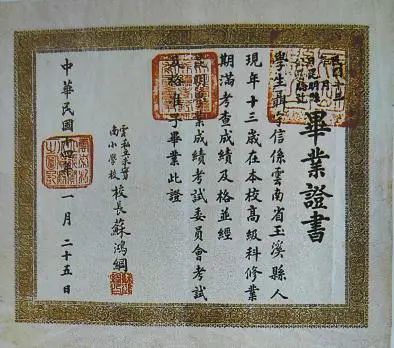 畢業證書
學生聶守信係雲南省玉溪縣人
現年十三歲在本校高級科修業
期滿考查成績及格並經
明學業成績考試委員會考試
及格准予畢業此證
雲私立求實
南小學校
校長蘇鴻綱
中華民國年一月二十五日